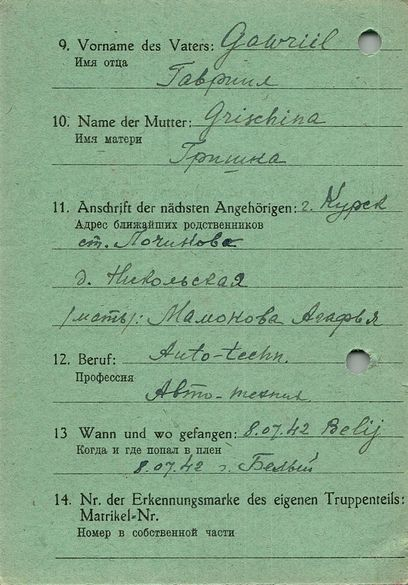 9. Vorname des Vaters: Gawriil
Имя отца
Гавриил
10. Name der Mutter: Grischina
Имя матери
Гришина
11. Anschrift der nächsten Angehörigen: г. Курск
Адрес ближайших родственников
ст. Лочинова
д. Никольская
/мать/: Мамонова Агафья
12. Beruf: Auto-techn.
Профессия
Авто-техник
13 Wann und wo gefangen: 8.07.42 Belij
Когда и где попал в плен
8.07.42 г. Белый
14. Nr. der Erkennungsmarke des eigenen Truppenteils:
Matrikel-Nr.
Номер в собственной части